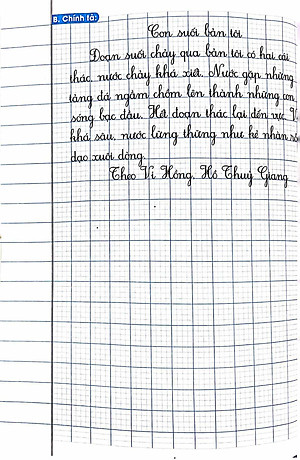 B. Chính tả:
Con suối bản tôi
Đoạn suối chảy qua bản tôi có hai cái
thác, nước chảy khá xiết. Nước gặp những
tảng đá ngầm chồm lên thành những con
sóng bạc đầu. Hết đoạn thác lại đến vực. V
khá sâu, nước lững thững như kẻ nhàn
dạo xuôi dòng.
Theo Vi Hồng, Hồ Thuỷ Giang